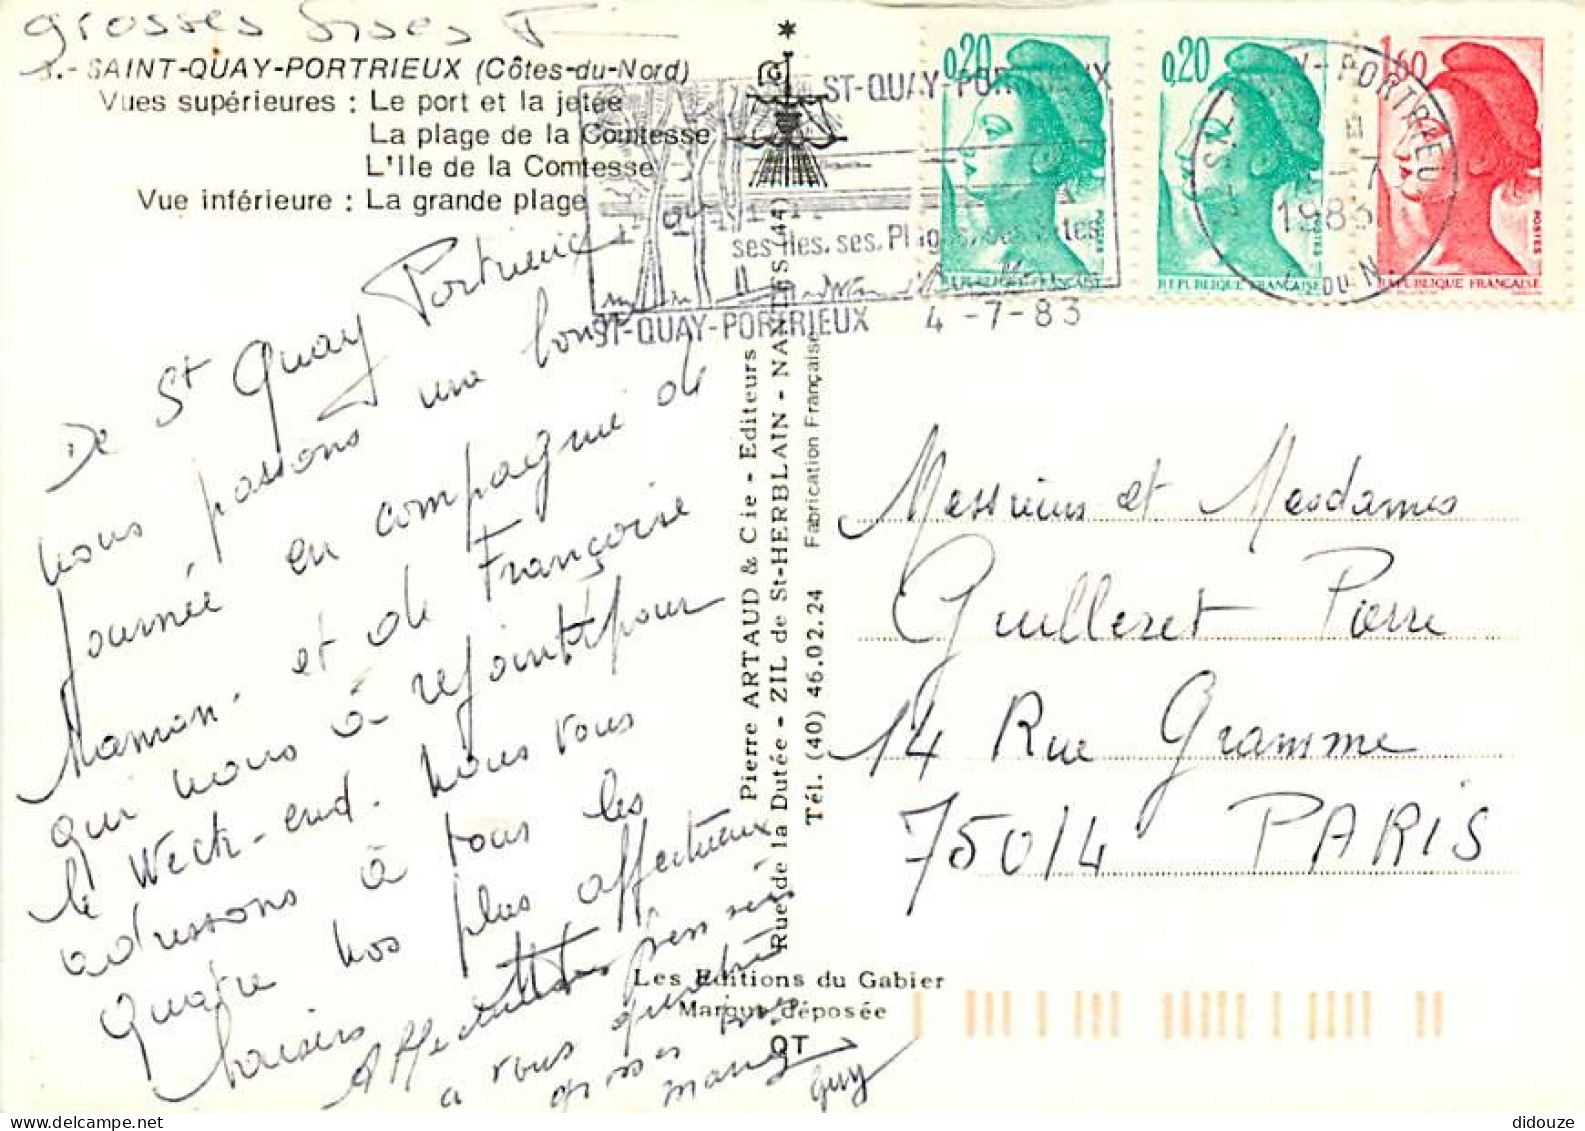 grosses bises
3.- SAINT-QUAY-PORTRIEUX (Côtes-du-Nord)
Vues supérieures : Le port et la jetée
La plage de la Comtesse
L'Ile de la Comtesse
Vue inférieure : La grande plage
De St Quay Portrieux
nous passons une bonne
journée en compagnie de
Maman. et de Françoise
qui nous a rejoint pour
le Week-end. Nous vous
adressons à tous les
quatre nos plus affectueux
baisers
Affectueuses pensées
a vous quatre
grosses bises
Guy
Pierre ARTAUD & Cie - Editeurs
Rue de la Dutée - ZIL de St-HERBLAIN - NANTES (44)
Tél. (40) 46.02.24 Fabrication Française
Les Editions du Gabier
Marque déposée
QT
ST-QUAY-PORTRIEUX
ses Iles, ses Plages, ses
ST-QUAY-PORTRIEUX 4 -7-83
0,20
REPUBLIQUE FRANÇAISE
POSTES
0,20
REPUBLIQUE FRANÇAISE
POSTES
1,60
REPUBLIQUE FRANÇAISE
POSTES
1983
DU N.
Messieurs et Mesdames
Guilleret Pierre
14 Rue Gramme
75014 PARIS
didouze